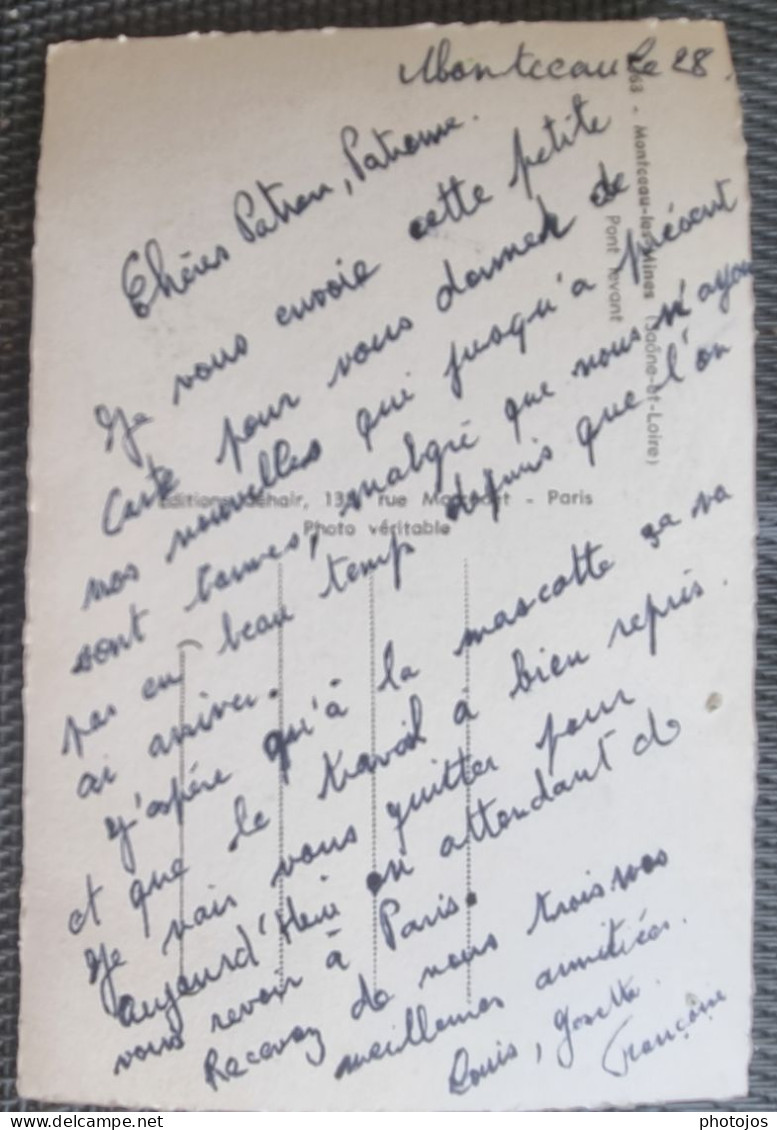 Montceau le 28.
Chères Patron, Patronne.
Je vous envoie cette petite
Carte pour vous donner de
nos nouvelles qui jusqu'a présent
sont bonnes, malgré que nous n'ayon
pas eu beau temp depuis que l'on
ai arriver.
J'espére qu'à la mascotte sa va
et que le travail à bien repris.
Je vais vous quitter pour
aujourd'Hui en attendant de
vous revoir à Paris.
Recevez de nous trois nos
meilleures amitiées.
Louis, Josette
Françoise
68 - Montceau-les-Mines (Saône-et-Loire)
Pont levant
Editions 13 rue - Paris
Photo véritable
photojos